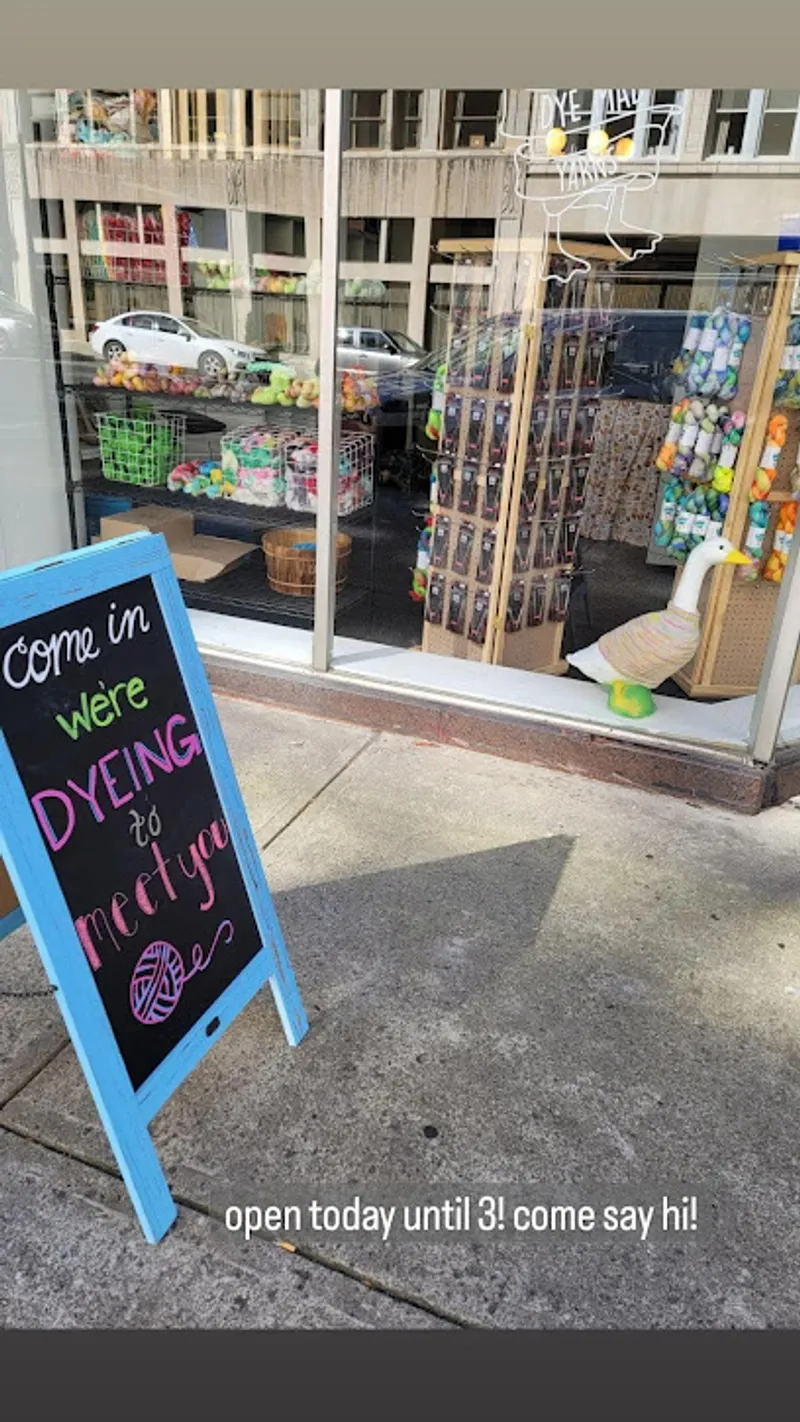 DYE MAD
YARNS
come in
we're
DYEING
to
meet you
open today until 3! come say hi!